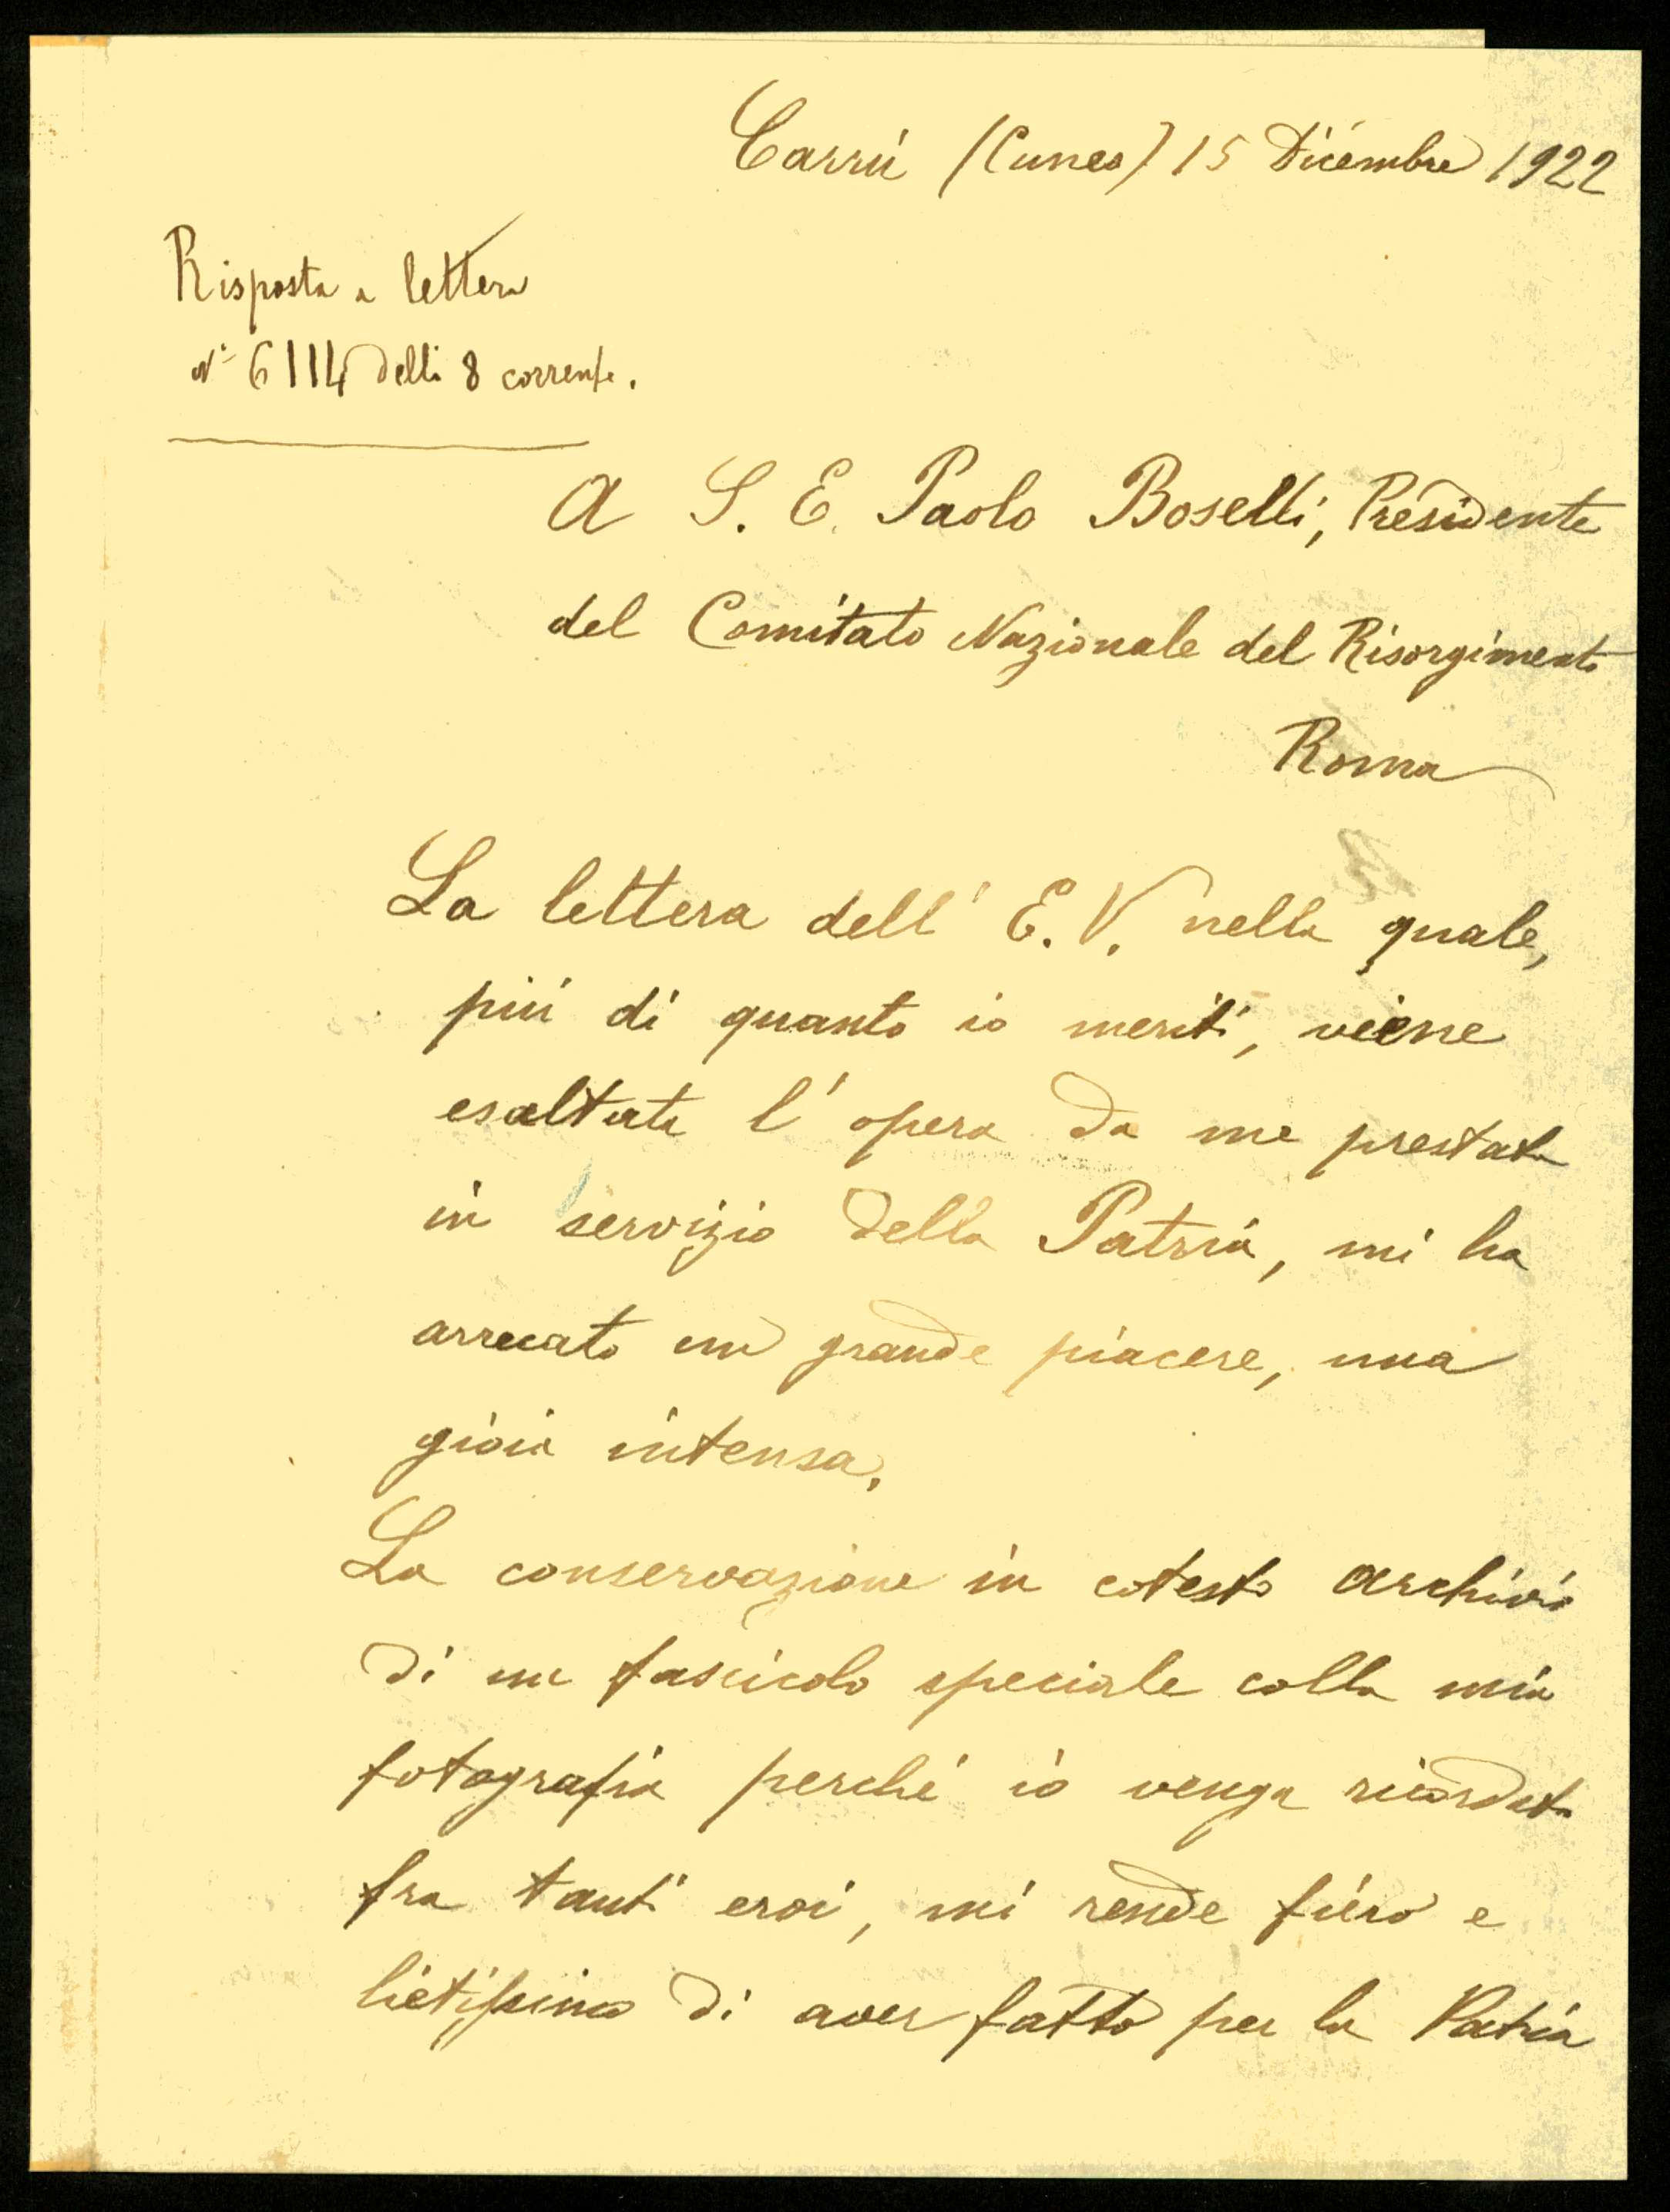 Carrù (Cuneo) 15 Dicembre 1922
Risposta a lettera
N° 6114 delli 8 corrente.
A S. E. Paolo Boselli, Presidente
del Comitato Nazionale del Risorgimento
Roma
La lettera dell' E. V. nella quale,
più di quanto io meriti, viene
esaltata l' opera da me prestata
in servizio della Patria, mi ha
arrecato un grande piacere, una
gioia intensa.
La conservazione in cotesto archivio
di un fascicolo speciale colla mia
fotografia perché io venga ricordato
fra tanti eroi, mi rende fiero e
lietissimo di aver fatto per la Patria